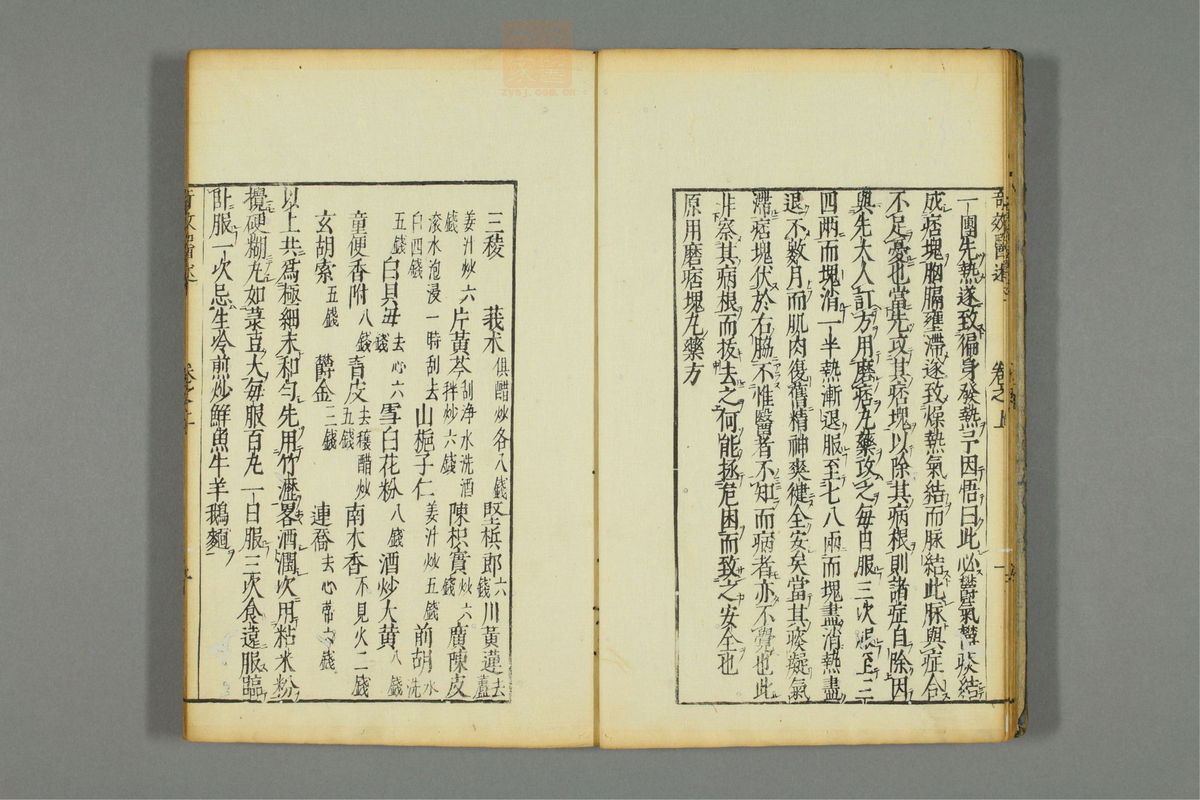 奇效醫述 卷之上
一團先熱遂致徧身發熱予因悟曰此必欝氣欝痰結
成痞塊胸膈壅滯遂致燥熱氣結而脉結此脉與症合
不足憂也當先攻其痞塊以除其病根則諸症自除因
與先大人訂方用磨痞丸藥攻之每日服三次服至三
四兩而塊消一半熱漸退服至七八兩而塊盡消熱盡
退不數月而肌肉復舊精神爽健全安矣當其痰凝氣
滯痞塊伏於右脇不惟醫者不知而病者亦不覺也此
非察其病根而拔去之何能拯危困而致之安全也
原用磨痞塊丸藥方
三稜 莪朮俱醋炒各八錢 堅梹郎六錢 川黃連去蘆
姜汁炒六錢 片黃芩刮净水洗酒拌炒六錢 陳枳實炒六錢 廣陳皮
滚水泡浸一時刮去白四錢 山梔子仁姜汁炒五錢 前胡水洗
五錢 白貝毋去心六錢 雪白花粉八錢 酒炒大黃八錢
童便香附八錢 青皮去穰醋炒五錢 南木香不見火二錢
玄胡索五錢 欝金三錢 連翹去心蒂六錢
以上共為極細末和勻先用竹瀝畧洒濶次用粘米粉
攪硬糊丸如菉豆大每服百丸一日服三次食遠服臨
卧服一次忌生冷煎炒鮮魚牛羊鵝麵
奇效醫述 卷之上